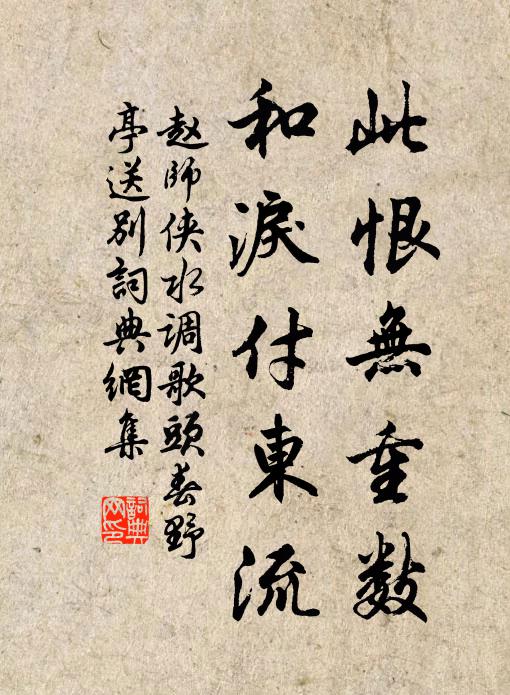 此恨無重数
和淚付東流
赵師侠水调歌頭春野
亭送别詞典網集
詞典
网印